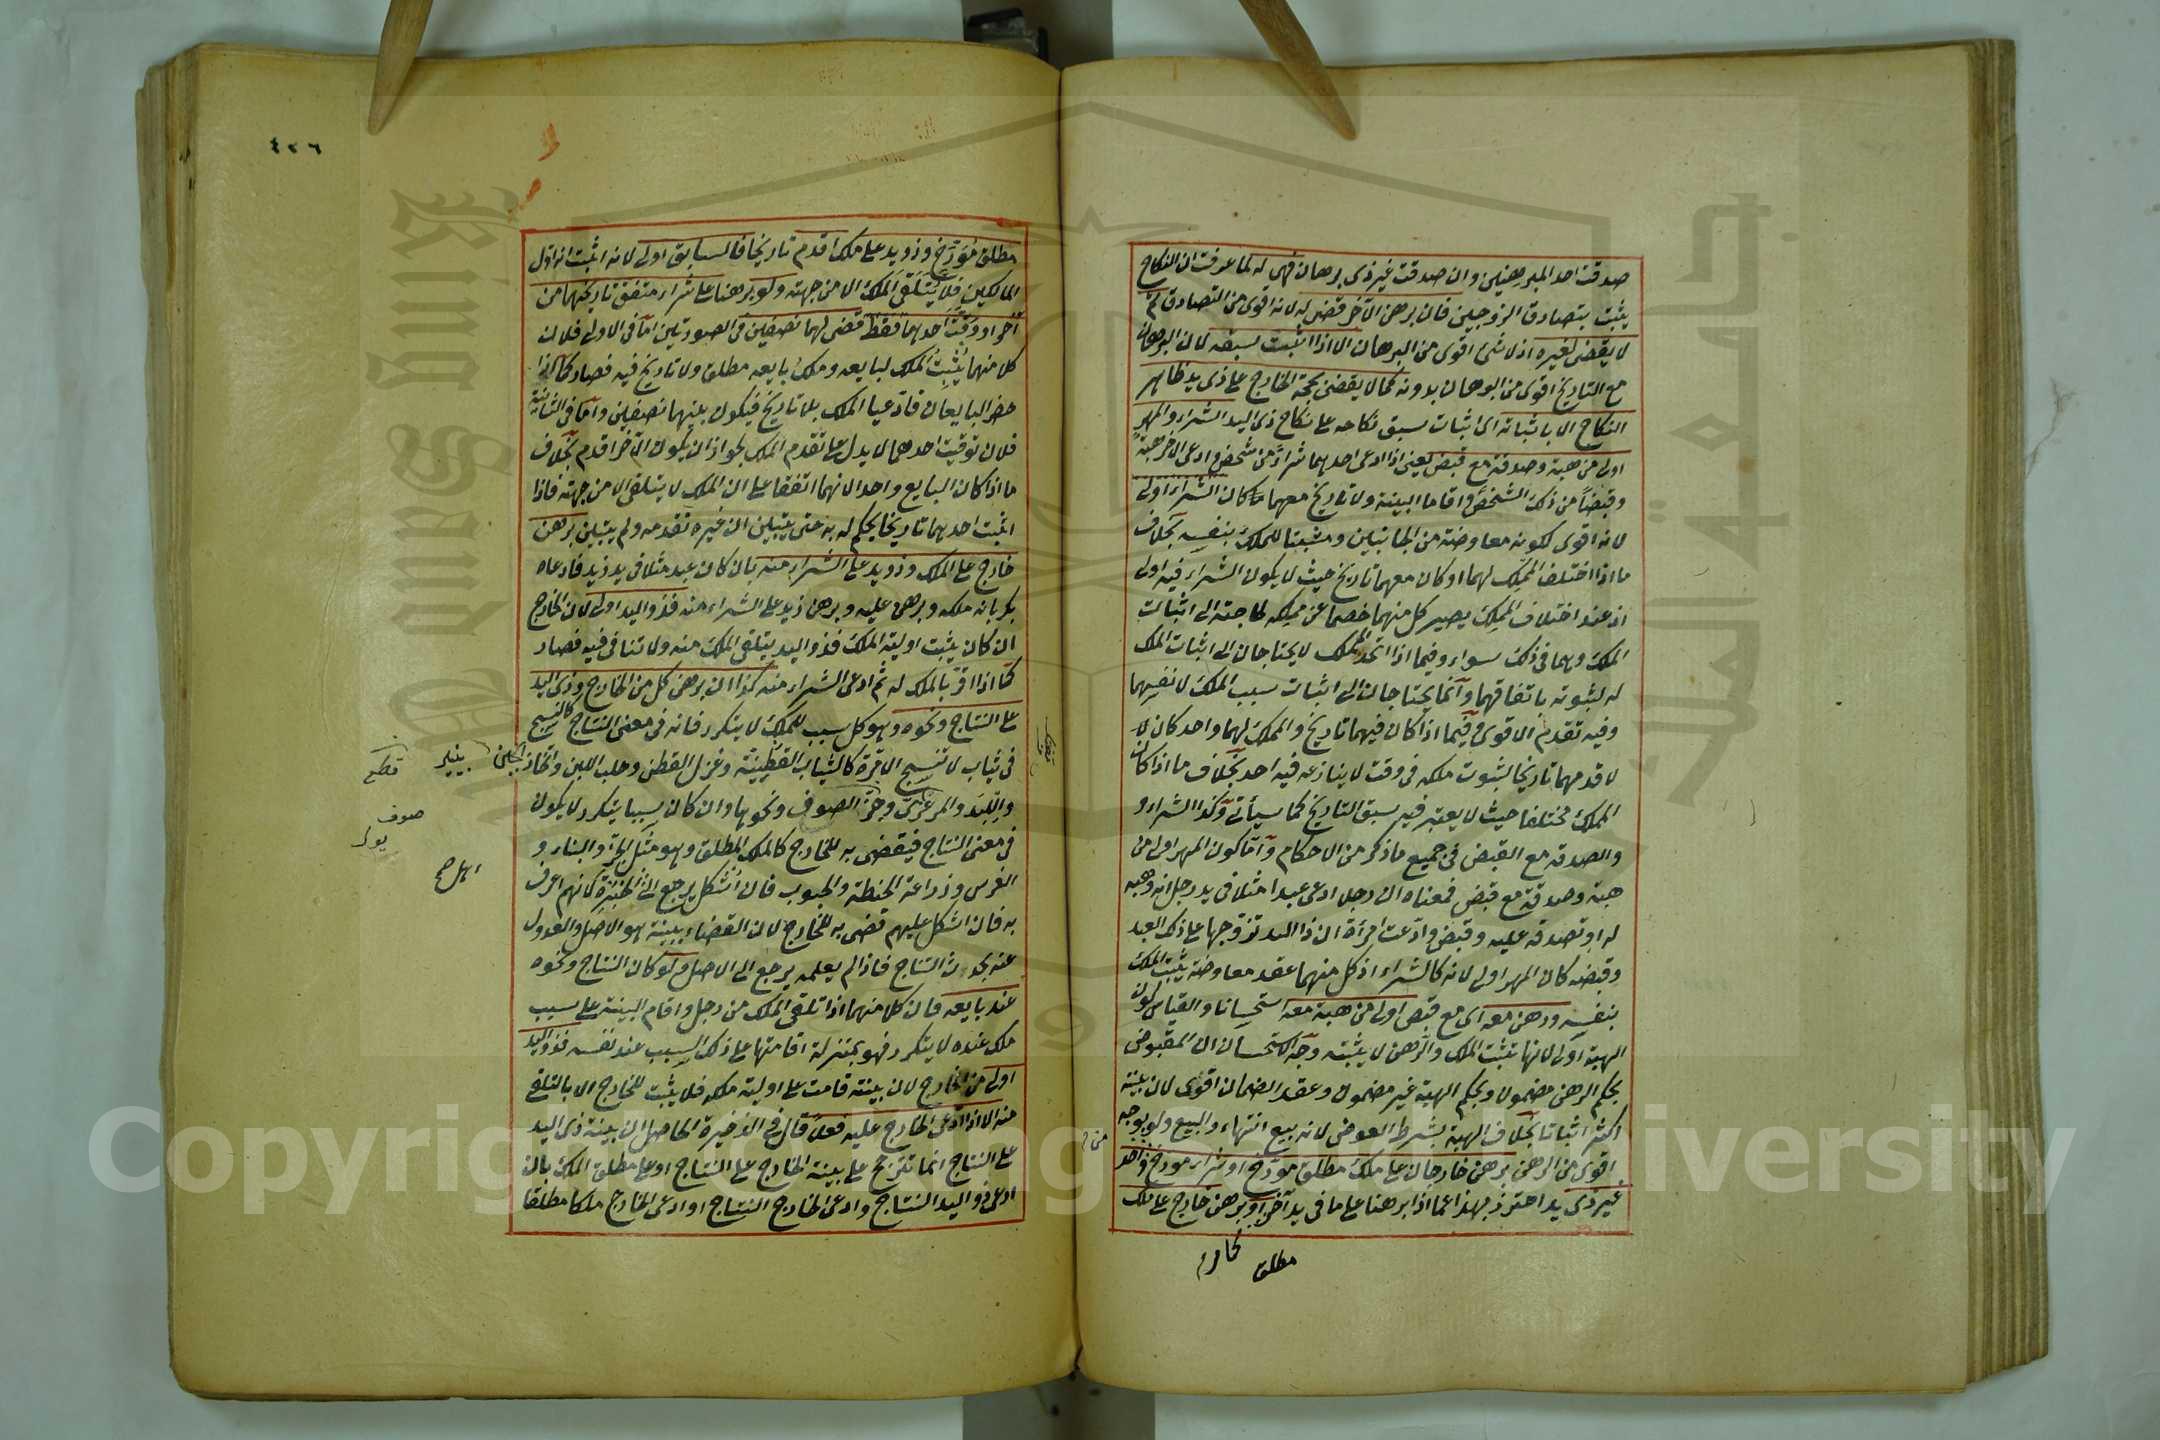 صدقت احد المبرهنين وان صدقت غير ذى برهان فهى له لما عرفت ان النكاح
يثبت بتصادق الزوجين فان برهن الآخر قضى له لانه اقوى من التصادق ثم
لا يقضى لغيره اذ لا شئ اقوى من البرهان الا اذا اثبت سبقه لان البرهان
مع التاريخ اقوى من البرهان بدونه كما لا يقضى بحجة الخارج على ذى يد ظاهر
النكاح الا باثباته اى اثبات سبق نكاحه على نكاح ذى اليد الشراء والمهر
اولى من هبة وصدقة مع قبض يعنى اذا ادعى احدهما شراءً من شخص وادعى الآخر هبة
وقبضاً من ذلك الشخص واقاما البينة ولا تاريخ معهما كان الشراء اولى
لانه اقوى لكونه معاوضة من الجانبين ومثبتا للملك بنفسه بخلاف
ما اذا اختلف المملّك لهما او كان معهما تاريخ حيث لا يكون الشراء فيه اولى
اذ عند اختلاف المملِك يصير كل منهما خصما عن مملِكه لحاجته الى اثبات
الملك وهما فى ذلك سواء وفيما اذا اتحد المملك لا يحتاجان الى اثبات الملك
له لثبوته باتفاقهما وانما يحتاجان الى اثبات سبب الملك لانفسهما
وفيه تقدم الاقوى وفيما اذا كان فيهما تاريخ والمملك لهما واحد كان لا
لاقدمهما تاريخا لثبوت ملكه فى وقت لا ينازعه فيه احد بخلاف ما اذا كان
المملك مختلفا حيث لا يعتبر فيه سبق التاريخ كما سيأتى وكذا الشراء و
والصدقة مع القبض فى جميع ما ذكر من الاحكام وأما كون المهر اولى من
هبة وصدقة مع قبض فمعناه ان رجلا ادعى عبدا مثلا فى يد رجل انه وهبه
له او تصدقه عليه وقبض وادّعت امرأة ان ذا اليد تزوجها على ذلك العبد
وقبضه كان المهر اولى لانه كالشراء اذ كل منهما عقد معاوضة يثبت الملك
بنفسه ورهن معه اى مع قبض اولى من هبة معه استحسانا والقياس كون
الهبة اولى لانها تثبت الملك والرهن لا يثبته وجه الاستحسان ان المقبوض
بحكم الرهن مضمون وبحكم الهبة غير مضمون وعقد الضمان اقوى لان بينته
اكثر اثباتا بخلاف الهبة بشرط العوض لانه بيع انتهاء والبيع ولو بوجه
اقوى من الرهن برهن خارجان على ملك مطلق مؤرخ او شراء مورخ من واحد
غير ذى يد احترز بهذا عما اذا برهنا على ما فى يد آخر او برهن خارج على ملك
مطلق
٤٢٦
مطلق مؤرّخ وذو يد على ملك اقدم تاريخا فالسابق اولى لانه اثبت انه اول
المالكين فلا يُتلقى الملك الا من جهته ولو برهنا على شراء متفق تاريخهما من
آخر او وقّت احدهما فقط قضى لهما نصفين فى الصورتين امّا فى الاولى فلان
كلا منهما يُثبت الملك لبايعه وملك بايعه مطلق ولا تاريخ فيه فصار كما اذا
حضر البايعان فادّعيا الملك بلا تاريخ فيكون بينهما نصفين وأما فى الثانية
فلان توقيت احدهما لا يدل على تقدم الملك لجواز ان يكون الآخر اقدم بخلاف
ما اذا كان البايع واحدا لانهما اتفقا على ان الملك لا يتلقى الا من جهته فاذا
اثبت احدهما تاريخا يحكم له به حتى يتبين ان غيره تقدمه ولم يتبين برهن
خارج على الملك وذو يد على الشراء منه بان كان عبد مثلا فى يد زيد فادعاه
بكر بانه ملكه وبرهن عليه وبرهن زيد على الشراء منه فذو اليد اولى لان الخارج
ان كان يثبت اولية الملك فذو اليد يتلقى الملك منه ولا تنافى فيه فصار
كما اذا اقرّ بالملك له ثم ادعى الشراء منه كذا ان برهن كل من الخارج وذى اليد
على النتاج ونحوه وهو كل سبب للملك لا يتكرر فانه فى معنى النتاج كالنسج
فى ثياب لا تنسج الا مرة كالثياب القطنية وغزل القطن وحلب اللبن واتخاذ الجبن
واللبد والمرعزى وجزّ الصوف ونحوها وان كان سببا يتكرر لا يكون
فى معنى النتاج فيقضى به للخارج كالملك المطلق وهو مثل الخز والبناء و
الغرس وزراعة الحنطة والحبوب فان اشكل يرجع الى الخبرة كانهم اعرف
به فان اشكل عليهم قضى به للخارج لان القضاء ببينته هو الاصل والعدول
عنه بحديث النتاج فاذا لم يعلم يرجع الى الاصل ولو كان النتاج ونحوه
عند بايعه فان كلا منهما اذا تلقى الملك من رجل واقام البينة على سبب
ملك عنده لا يتكرر فهو بمنزلة اقامتها على ذلك السبب عند نفسه فذو اليد
اولى من الخارج لان بينته قامت على اولية ملكه فلا يثبت للخارج الا بالتلقى
منه الا اذا ادّعى الخارج عليه فعلا قال فى الذخيرة الحاصل ان بينة ذى اليد
على النتاج انما تترجح على بينة الخارج على النتاج او على مطلق الملك بان
ادعى ذو اليد النتاج وادعى الخارج النتاج او ادعى الخارج ملكا مطلقا
قطع
صوف
Copyright © King Saud University